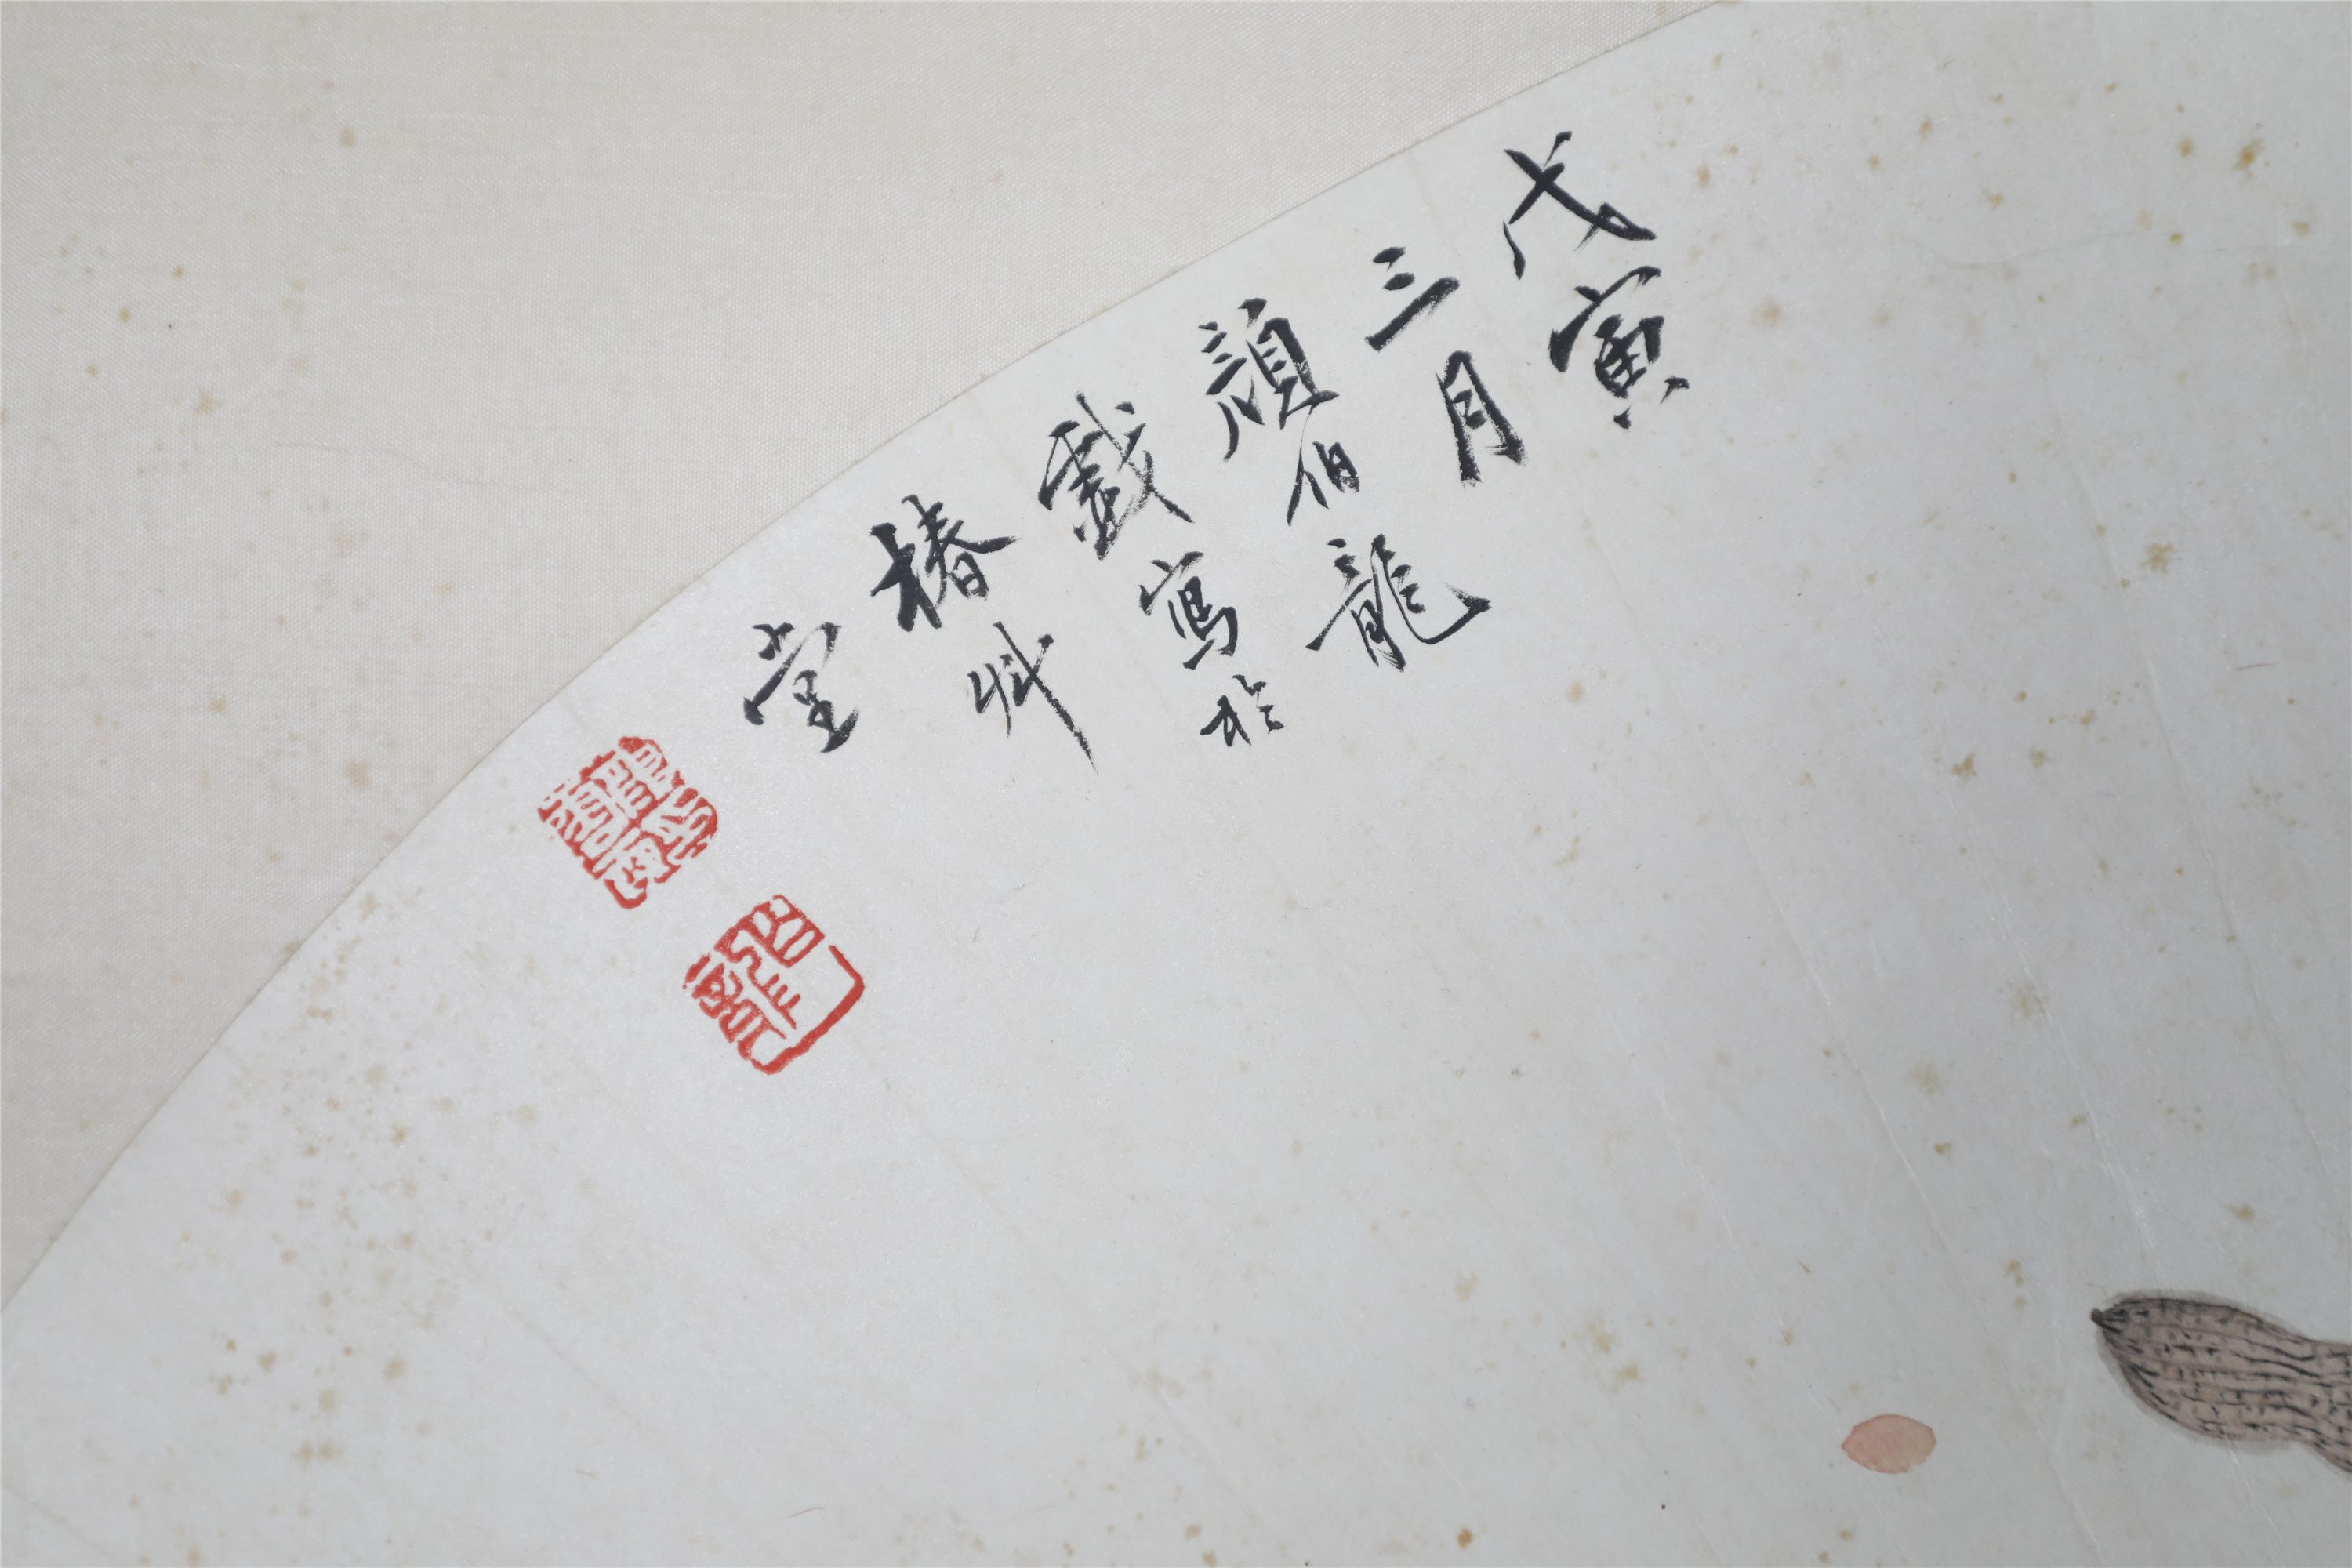 戊寅
三月
顏伯龍
戲寫於
椿艸
堂